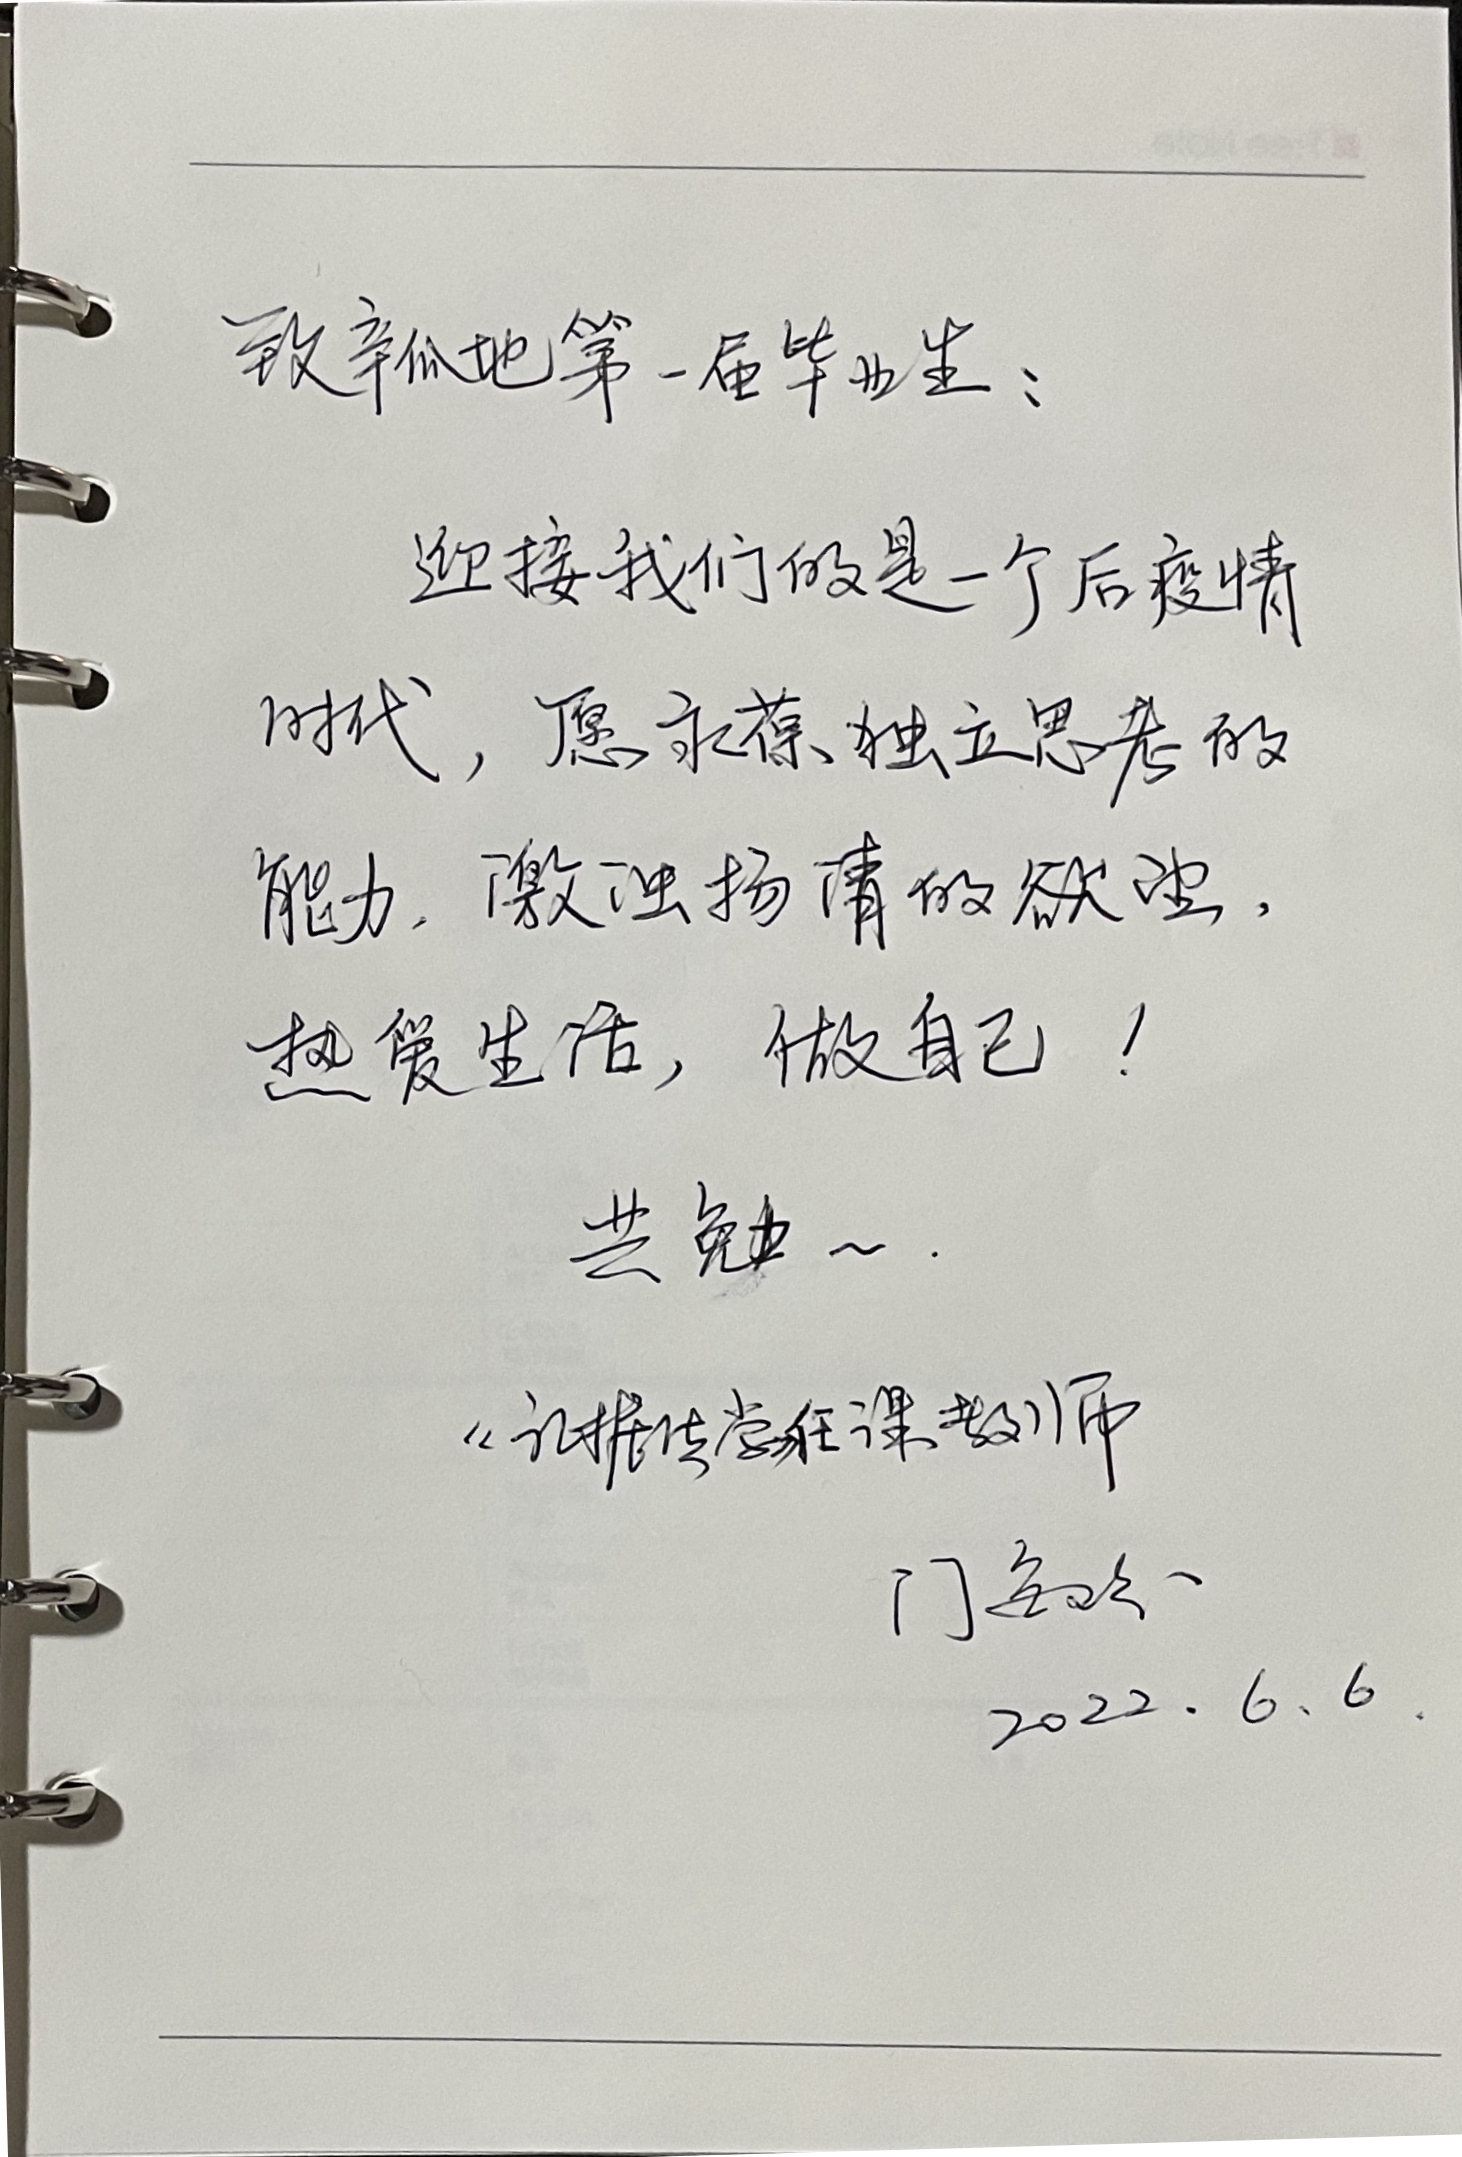 致辛瓜地第一届毕业生：
迎接我们的是一个后疫情
时代，愿永葆独立思考的
能力、激浊扬清的欲望，
热爱生活，做自己！
共勉～．
《证据法学任课教》师
门金玲
2022.6.6.